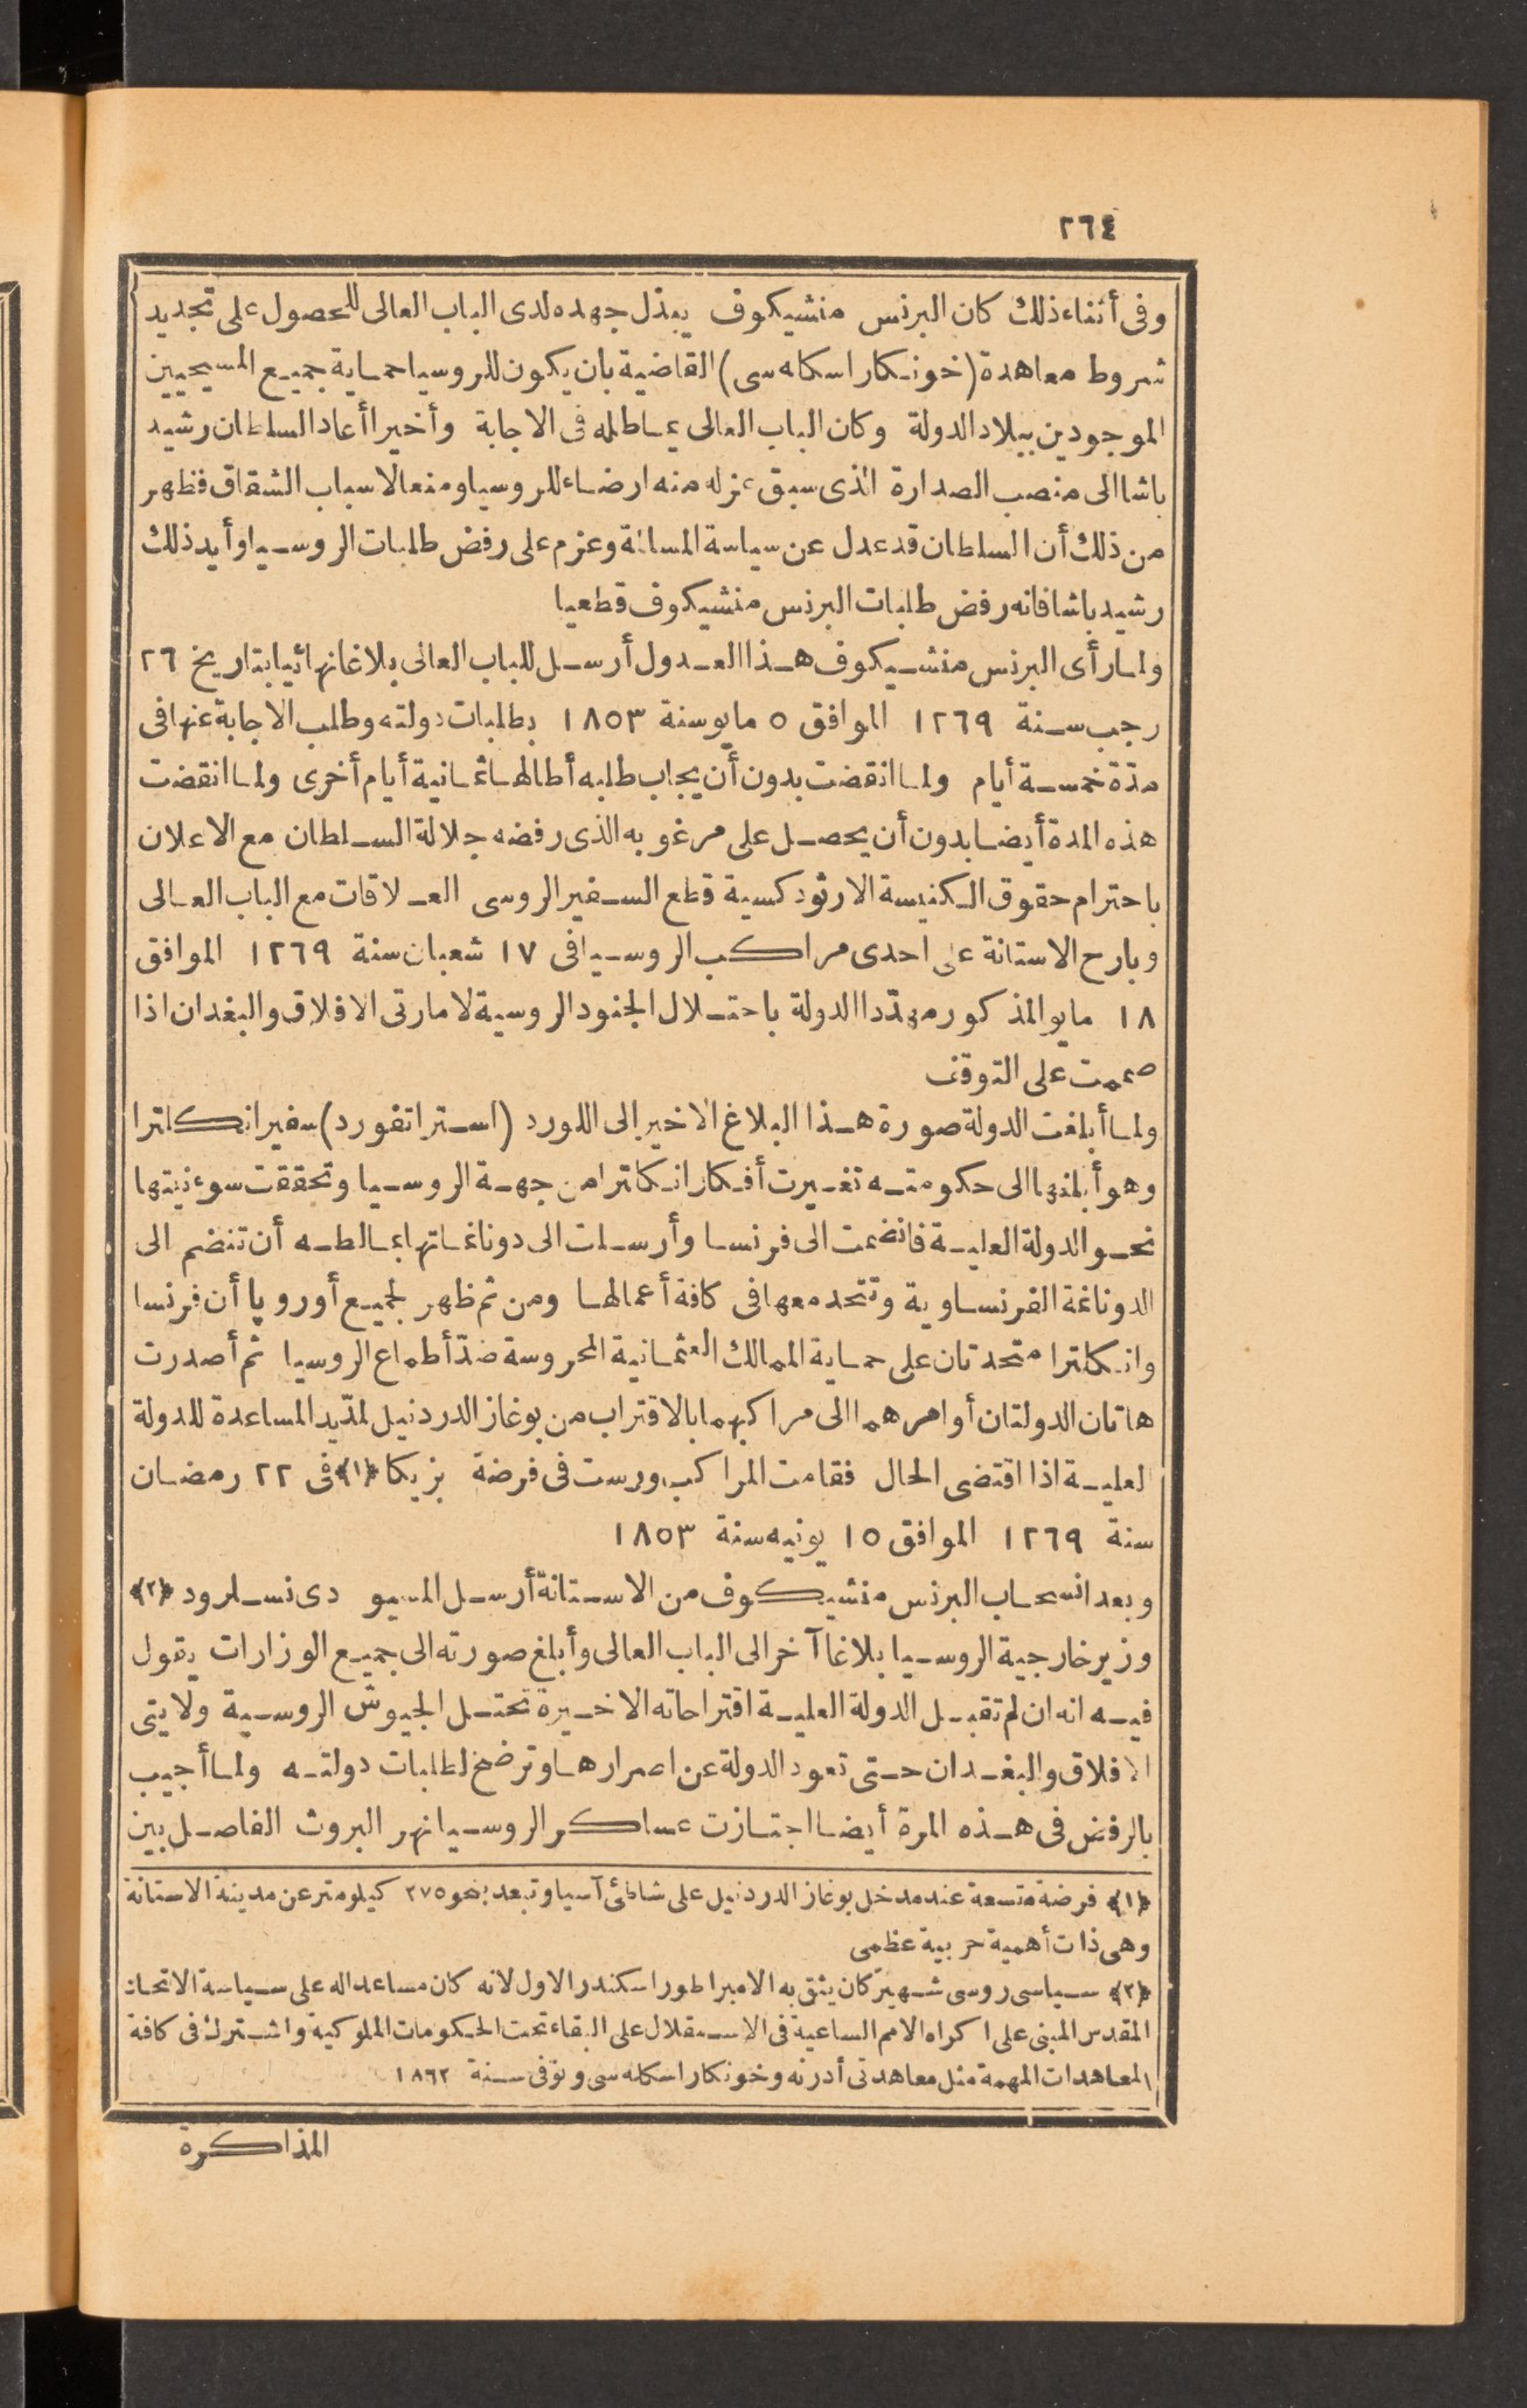 ٢٦٤
وفى أثناء ذلك كان البرنس منشيكوف يبذل جهده لدى الباب العالى للحصول على تجديد
شروط معاهدة (خونكار اسكله سى) القاضية بان يكون للروسيا حماية جميع المسيحيين
الموجودين ببلاد الدولة وكان الباب العالى يماطله فى الاجابة وأخيرا أعاد السلطان رشيد
باشا الى منصب الصدارة الذى سبق عزله منه ارضاء للروسيا ومنعا لاسباب الشقاق فظهر
من ذلك أن السلطان قد عدل عن سياسة المسالمة وعزم على رفض طلبات الروسيا وأيد ذلك
رشيد باشا فانه رفض طلبات البرنس منشيكوف قطعيا
ولما رأى البرنس منشيكوف هذا العدول أرسل للباب العالى بلاغا نهائيا بتاريخ ٢٦
رجب سنة ١٢٦٩ الموافق ٥ مايو سنة ١٨٥٣ بطلبات دولته وطلب الاجابة عنها فى
مدّة خمسة أيام ولما انقضت بدون أن يجاب طلبه أطالها ثمانية أيام أخرى ولما انقضت
هذه المدة أيضا بدون أن يحصل على مرغوبه الذى رفضه جلالة السلطان مع الاعلان
باحترام حقوق الكنيسة الارثودكسية قطع السفير الروسى العلاقات مع الباب العالى
وبارح الاستانة على احدى مراكب الروسيا فى ١٧ شعبان سنة ١٢٦٩ الموافق
١٨ مايو المذكور مهدّدا الدولة باحتلال الجنود الروسية لامارتى الافلاق والبغدان اذا
صممت على التوقف
ولما أبلغت الدولة صورة هذا البلاغ الاخير الى اللورد (استراتفورد) سفير انكلترا
وهو أبلغها الى حكومته تغيرت أفكار انكلترا من جهة الروسيا وتحققت سوء نيتها
نحو الدولة العلية فانضمت الى فرنسا وأرسلت الى دوناغاتها بمالطه أن تنضم الى
الدوناغة الفرنساوية وتتحد معها فى كافة أعمالها ومن ثم ظهر لجميع أوروپا أن فرنسا
وانكلترا متحدتان على حماية الممالك العثمانية المحروسة ضدّ أطماع الروسيا ثم أصدرت
هاتان الدولتان أوامرهما الى مراكبهما بالاقتراب من بوغاز الدردنيل لمدّ يد المساعدة للدولة
العلية اذا اقتضى الحال فقامت المراكب ورست فى فرضة بزيكا ﴿١﴾ فى ٢٢ رمضان
سنة ١٢٦٩ الموافق ١٥ يونيه سنة ١٨٥٣
وبعد انسحاب البرنس منشيكوف من الاستانة أرسل المسيو دى نسلرود ﴿٢﴾
وزير خارجية الروسيا بلاغا آخر الى الباب العالى وأبلغ صورته الى جميع الوزارات يقول
فيه انه ان لم تقبل الدولة العلية اقتراحاته الاخيرة تحتل الجيوش الروسية ولايتى
الافلاق والبغدان حتى تعود الدولة عن اصرارها وترضخ لطلبات دولته ولما أجيب
بالرفض فى هذه المرة أيضا اجتازت عساكر الروسيا نهر البروث الفاصل بين
﴿١﴾ فرضة متسعة عند مدخل بوغاز الدردنيل على شاطئ آسيا وتبعد بنحو ٢٧٥ كيلومتر عن مدينة الاستانة
وهى ذات أهمية حربية عظمى
﴿٢﴾ سياسى روسى شهير كان يثق به الامبراطور اسكندر الاول لانه كان مساعدا له على سياسة الاتحاد
المقدس المبنى على اكراه الامم الساعية فى الاستقلال على البقاء تحت الحكومات الملوكية واشترك فى كافة
المعاهدات المهمة مثل معاهدتى أدرنه وخونكار اسكله سى وتوفى سنة ١٨٦٢
المذاكرة